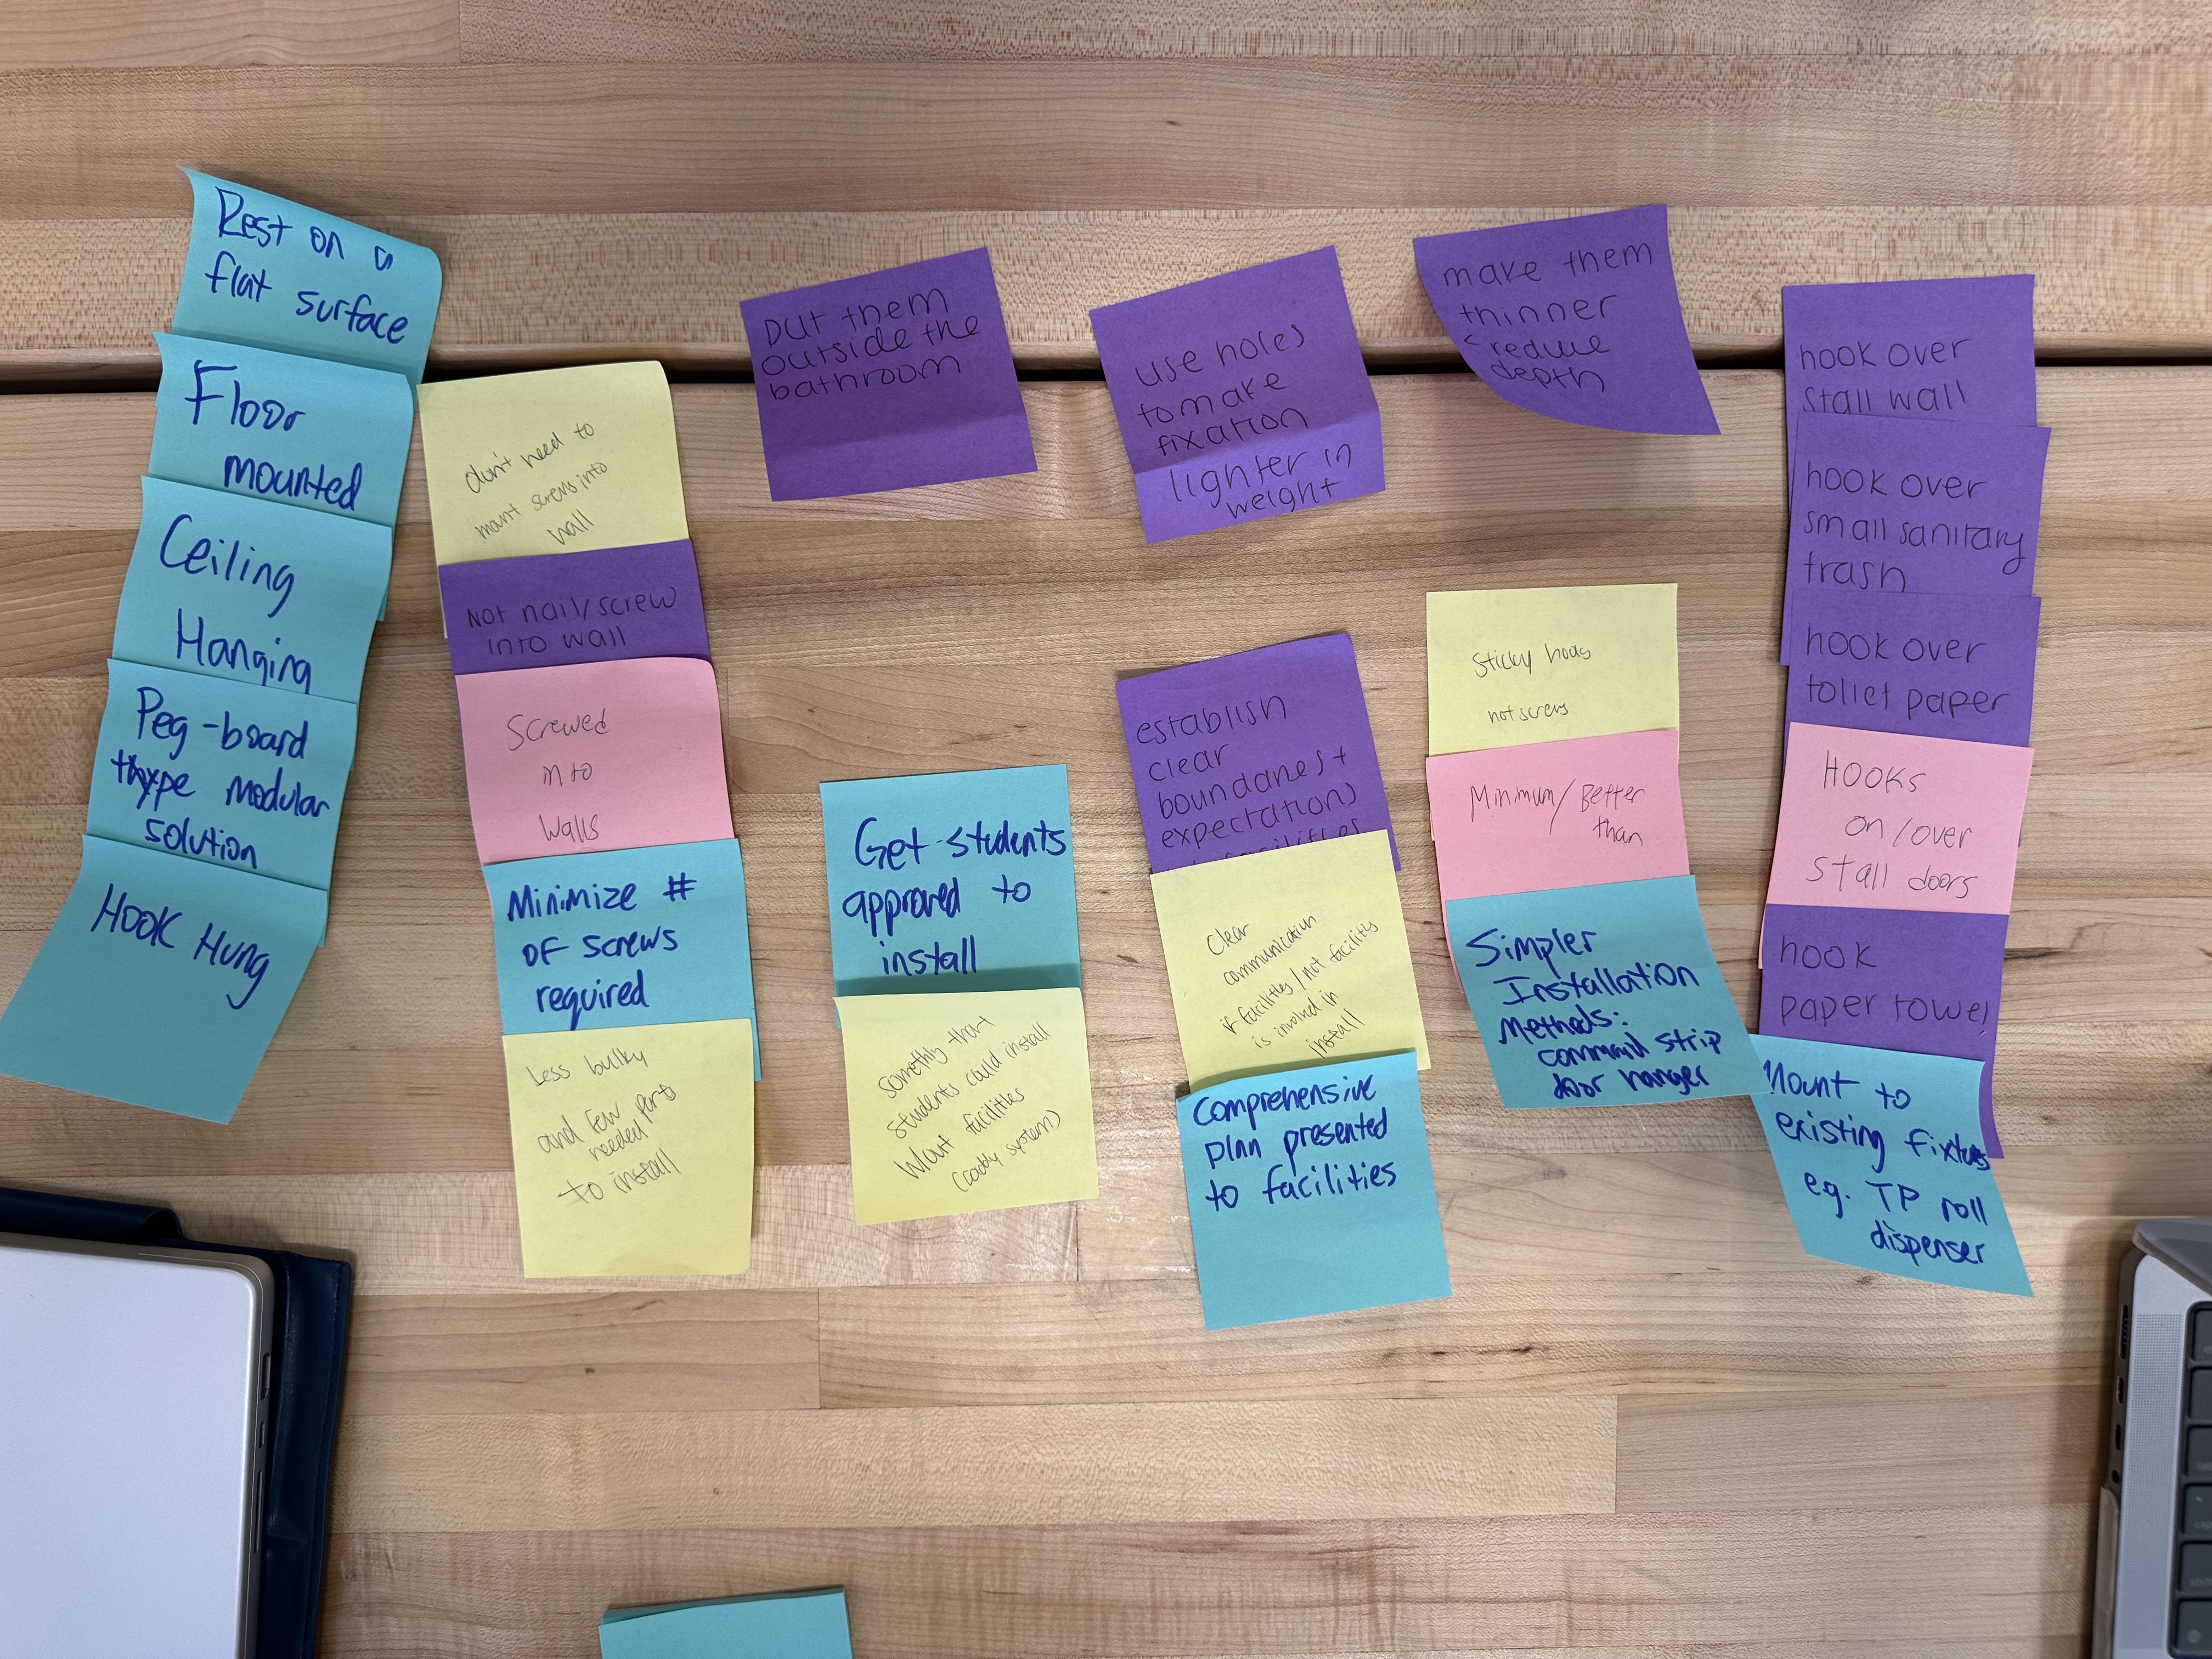 Rest on a
flat surface
Floor
mounted
Ceiling
Hanging
Peg-board
type modular
solution
Hook Hung
don't need to
mount screws into
wall
Not nail/screw
into wall
Screwed
into
walls
Minimize #
of screws
required
Less bulky
and few parts
needed
to install
put them
outside the
bathroom
Get students
approved to
install
something that
students could install
w/out facilities
(caddy system)
use holes
to make
fixation
lighter in
weight
establish
clear
boundaries +
expectations
Clear
communication
if facilities/not facility
is involved in
install
Comprehensive
plan presented
to facilities
make them
thinner
reduce
depth
Sticky hooks
not screws
Minimum/Better
than
Simpler
Installation
Methods:
command strip
door hanger
hook over
stall wall
hook over
small sanitary
trash
hook over
toliet paper
Hooks
on/over
stall doors
hook
paper towel
Mount to
existing fixtures
e.g. TP roll
dispenser